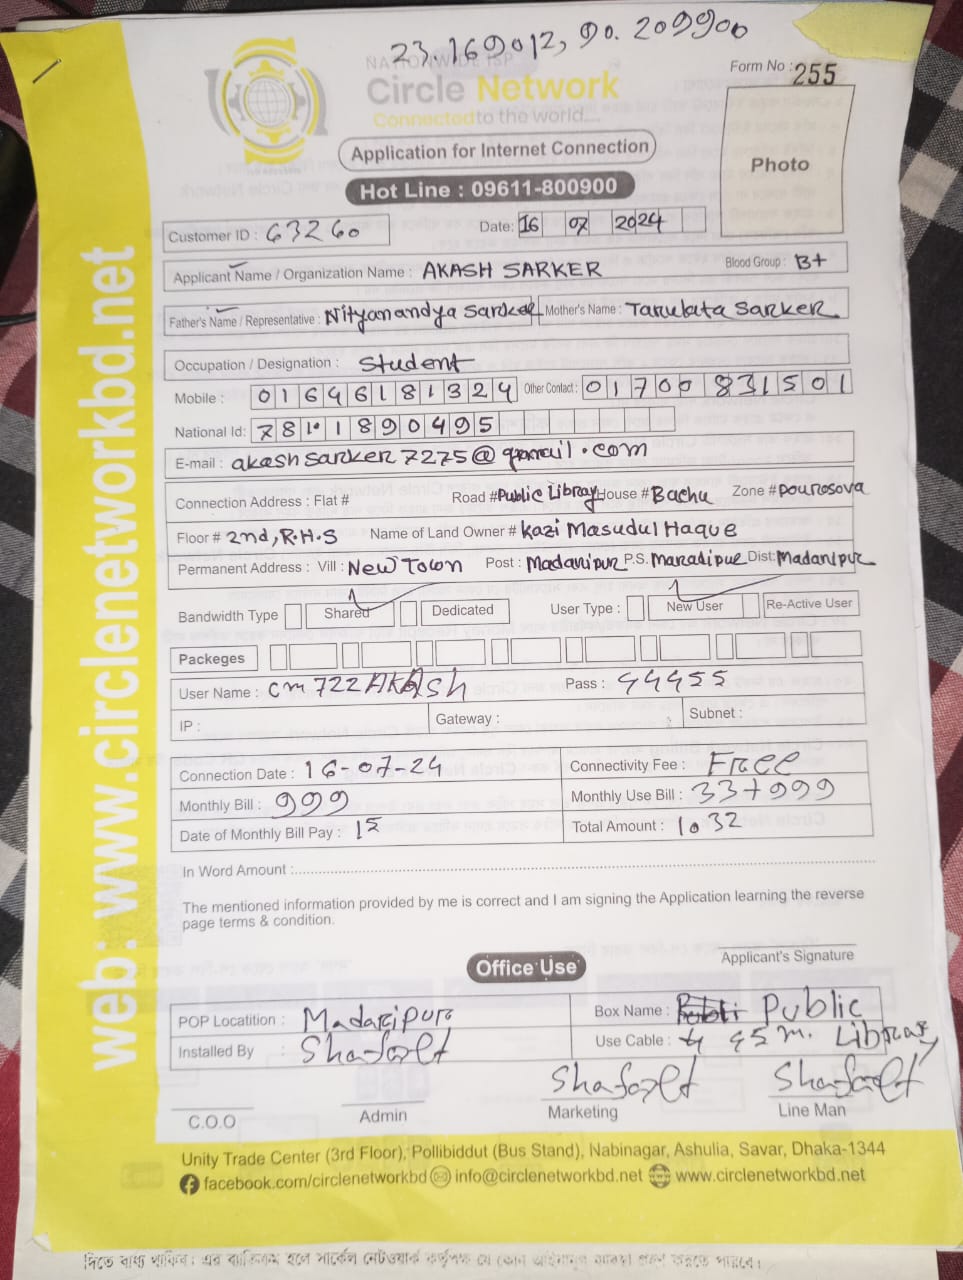 23.169012, 90.209900
NATIONWIDE ISP
Circle Network
Connected to the world....
Form No : 255
Application for Internet Connection
Photo
Hot Line : 09611-800900
Customer ID : 63260 Date: 16 07 2024
Applicant Name / Organization Name : AKASH SARKER Blood Group : B+
Father's Name / Representative : Nityanandya Sarker Mother's Name : Tarulata Sarker
Occupation / Designation : Student
Mobile : 01646181324 Other Contact : 01700831501
National Id: 7811890495
E-mail : akashsarker7275@gmail.com
Connection Address : Flat # Road # Public Libray House # Bachu Zone # Pourosova
Floor # 2nd, R.H.S Name of Land Owner # Kazi Masudul Haque
Permanent Address : Vill : New Town Post : Madaripur P.S. Maradipur Dist: Madaripur
Bandwidth Type Shared Dedicated User Type : New User Re-Active User
Packeges
User Name : cm722AKASh Pass : 44455
IP : Gateway : Subnet :
Connection Date : 16-07-24 Connectivity Fee : Free
Monthly Bill : 999 Monthly Use Bill : 33+999
Date of Monthly Bill Pay : 15 Total Amount : 1032
In Word Amount :
The mentioned information provided by me is correct and I am signing the Application learning the reverse
page terms & condition.
Applicant's Signature
Office Use
POP Locatition : Madaripur Box Name : Public
Installed By : Use Cable : 45 m. Library
C.O.O Admin Marketing Line Man
Unity Trade Center (3rd Floor), Pollibiddut (Bus Stand), Nabinagar, Ashulia, Savar, Dhaka-1344
facebook.com/circlenetworkbd info@circlenetworkbd.net www.circlenetworkbd.net
web: www.circlenetworkbd.net